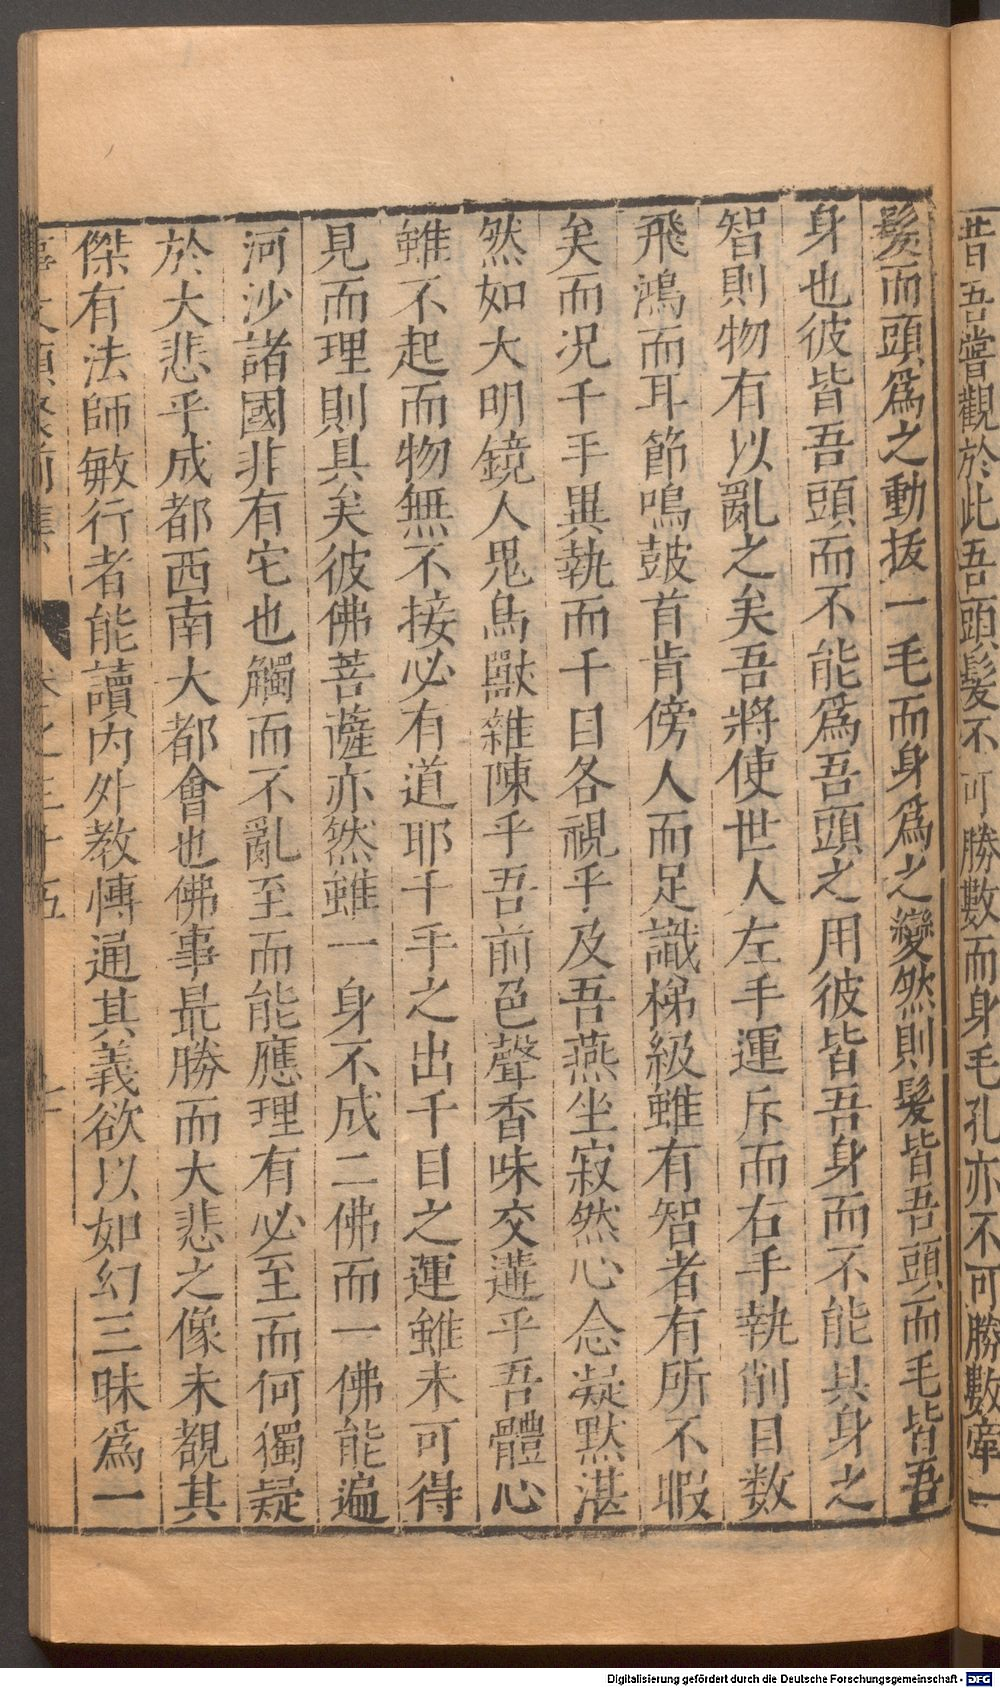 昔吾嘗觀於此吾頭髮不可勝數而身毛孔亦不可勝數牽一
髮而頭爲之動拔一毛而身爲之變然則髮皆吾頭而毛皆吾
身也彼皆吾頭而不能爲吾頭之用彼皆吾身而不能具身之
智則物有以亂之矣吾將使世人左手運斤而右手執削目数
飛鴻而耳節鳴鼓首肯傍人而足識梯級雖有智者有所不暇
矣而况千手異執而千目各視乎及吾燕坐寂然心念凝默湛
然如大明鏡人鬼鳥獸雜陳乎吾前色聲香味交遘乎吾體心
雖不起而物無不接必有道耶千手之出千目之運雖未可得
見而理則具矣彼佛菩薩亦然雖一身不成二佛而一佛能遍
河沙諸國非有它也觸而不亂至而能應理有必至而何獨疑
於大悲乎成都西南大都會也佛事最勝而大悲之像未覩其
傑有法師敏行者能讀内外教博通其義欲以如幻三昧爲一
事文類聚前集 卷之三十五
Digitalisierung gefördert durch die Deutsche Forschungsgemeinschaft - DFG